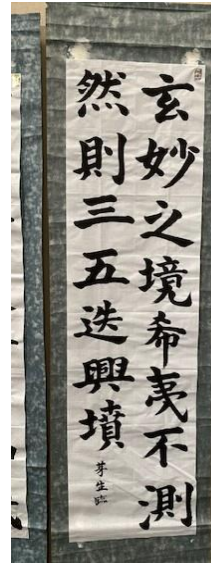 玄妙之境希夷不測
然則三五迭興墳
芽生臨